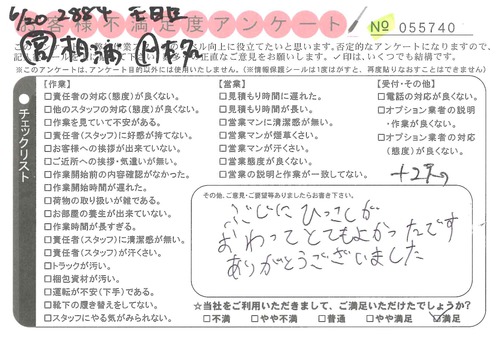 6/20 2884
お客様不満足度アンケート
№ 055740
相済
※このアンケートは、アンケート目的以外には使用いたしません。(※情報保護シールは1度はがすと、再度貼りなおすことはできません)
チェックリスト
【作業】
□責任者の対応(態度)が良くない。
□他のスタッフの対応(態度)が良くない。
□作業を見ていて不安がある。
□責任者(スタッフ)に好感が持てない。
□お客様への挨拶が出来ていない。
□ご近所への挨拶・気遣いが無い。
□作業開始前の内容確認がなかった。
□作業開始時間が遅れた。
□荷物の取り扱いが雑である。
□お部屋の養生が出来ていない。
□作業時間が長すぎる。
□責任者(スタッフ)に清潔感が無い。
□責任者(スタッフ)が汗臭い。
□トラックが汚い。
□梱包資材が汚い。
□運転が不安(下手)である。
□靴下の履き替えをしてない。
□スタッフにやる気がみられない。
【営業】
□見積もり時間に遅れた。
□見積もり時間が長い。
□営業マンに清潔感が無い。
□営業マンが煙草くさい。
□営業マンが汗くさい。
□営業態度が良くない。
□営業の説明と作業が一致してない。
【受付・その他】
□電話の対応が良くない。
□オプション業者の説明
・作業が良くない。
□オプション業者の対応
(態度)が良くない。
その他、ご意見・ご要望等ありましたらお書き下さい。
ぶじにひっこしが
おわってとてもよかったです
ありがとうございました
☆当社をご利用いただきまして、ご満足いただけたでしょうか?
□不満 □やや不満 □普通 □やや満足 ☑満足